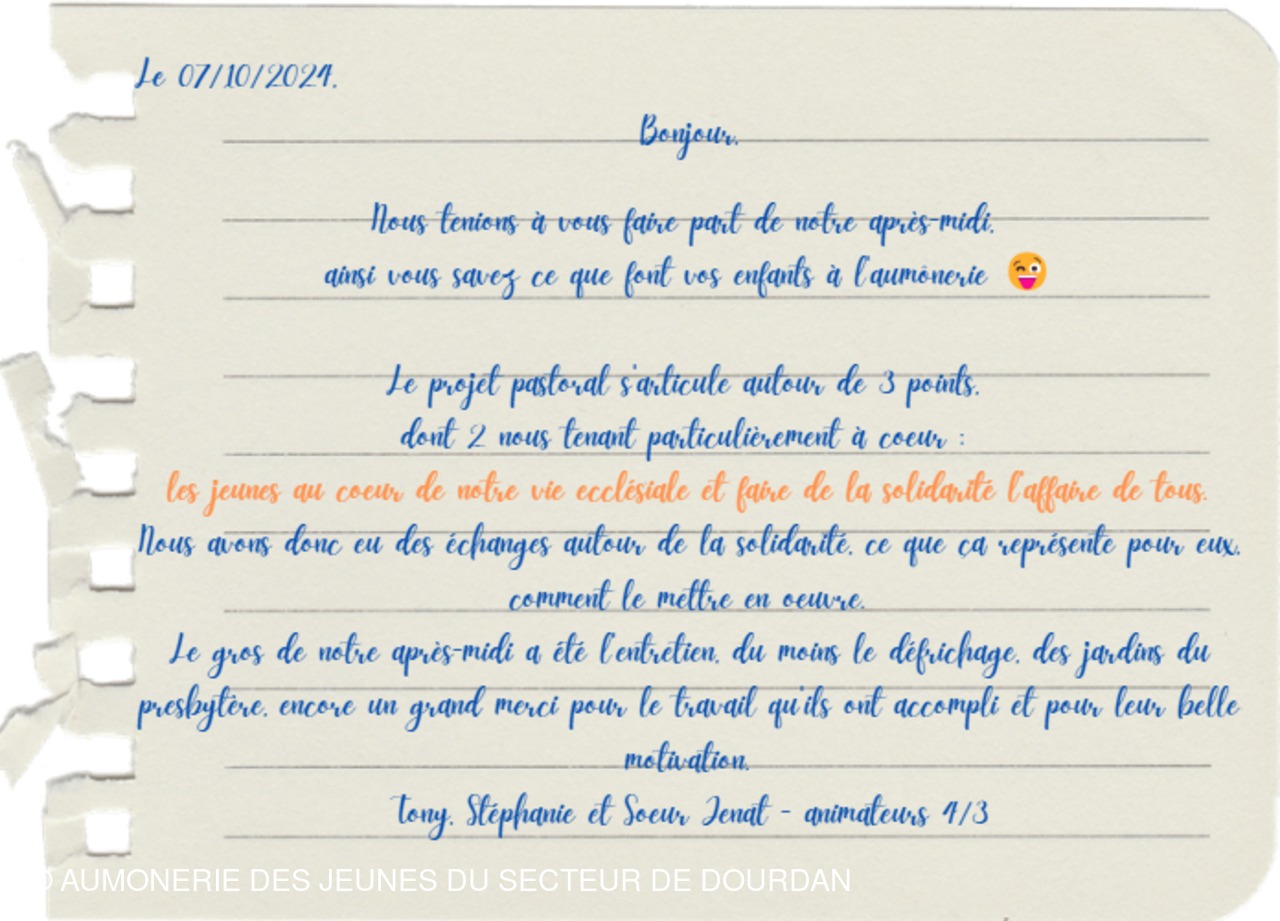 Le 07/10/2024,
Bonjour,
Nous tenions à vous faire part de notre après-midi,
ainsi vous savez ce que font vos enfants à l'aumônerie 😜
Le projet pastoral s'articule autour de 3 points,
dont 2 nous tenant particulièrement à coeur :
les jeunes au coeur de notre vie ecclésiale et faire de la solidarité l'affaire de tous.
Nous avons donc eu des échanges autour de la solidarité, ce que ça représente pour eux,
comment le mettre en oeuvre.
Le gros de notre après-midi a été l'entretien, du moins le défrichage, des jardins du
presbytère, encore un grand merci pour le travail qu'ils ont accompli et pour leur belle
motivation.
Tony, Stéphanie et Soeur Jenat - animateurs 4/3
© AUMONERIE DES JEUNES DU SECTEUR DE DOURDAN